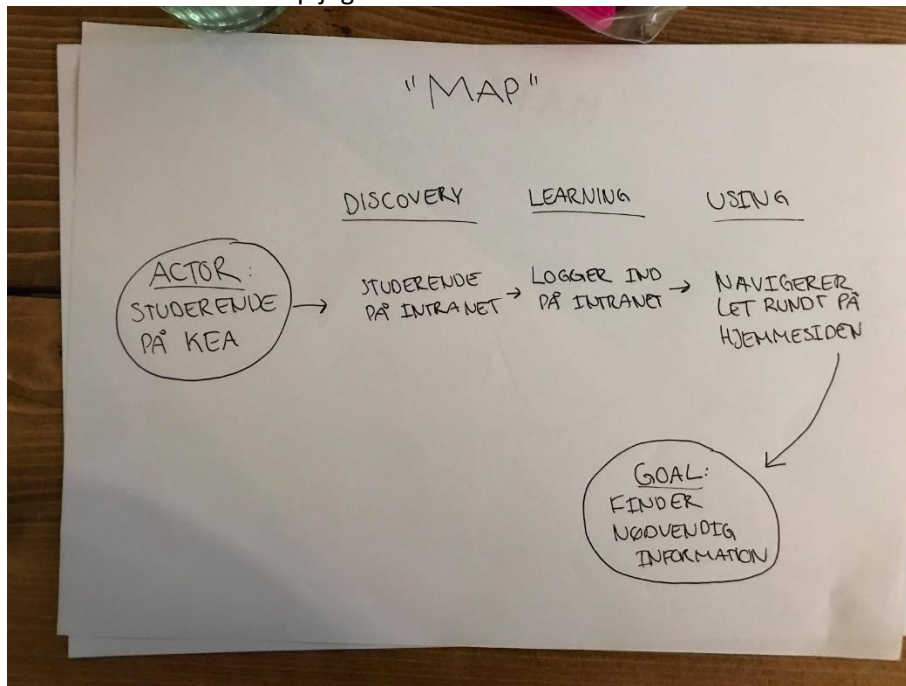 "MAP"
DISCOVERY
LEARNING
USING
ACTOR:
STUDERENDE
PÅ KEA
STUDERENDE
PÅ INTRANET
LOGGER IND
PÅ INTRANET
NAVIGERER
LET RUNDT PÅ
HJEMMESIDEN
GOAL:
FINDER
NØDVENDIG
INFORMATION